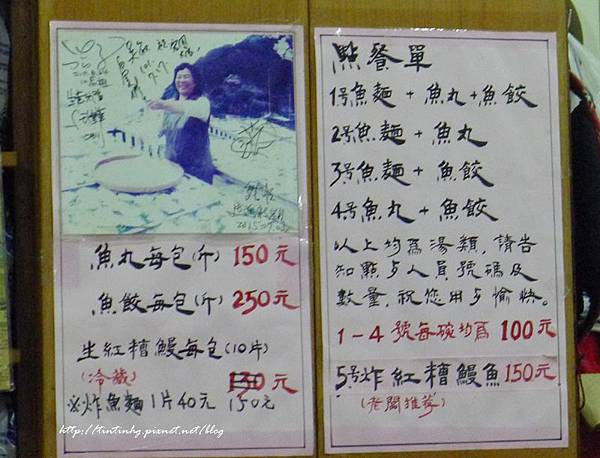 魚丸每包(斤) 150元
魚餃每包(斤) 250元
生紅糟鰻每包(10片)
(冷藏) 130元
※炸魚麵1片40元 150元
http://tintinhg.pixnet.net/blog
點餐單
1號魚麵+魚丸+魚餃
2號魚麵+魚丸
3號魚麵+魚餃
4號魚丸+魚餃
以上均為湯類,請告
知點歺人員號碼及
數量,祝您用歺愉快。
1-4號每碗均為100元
5號炸紅糟鰻魚150元
(老闆推荐)